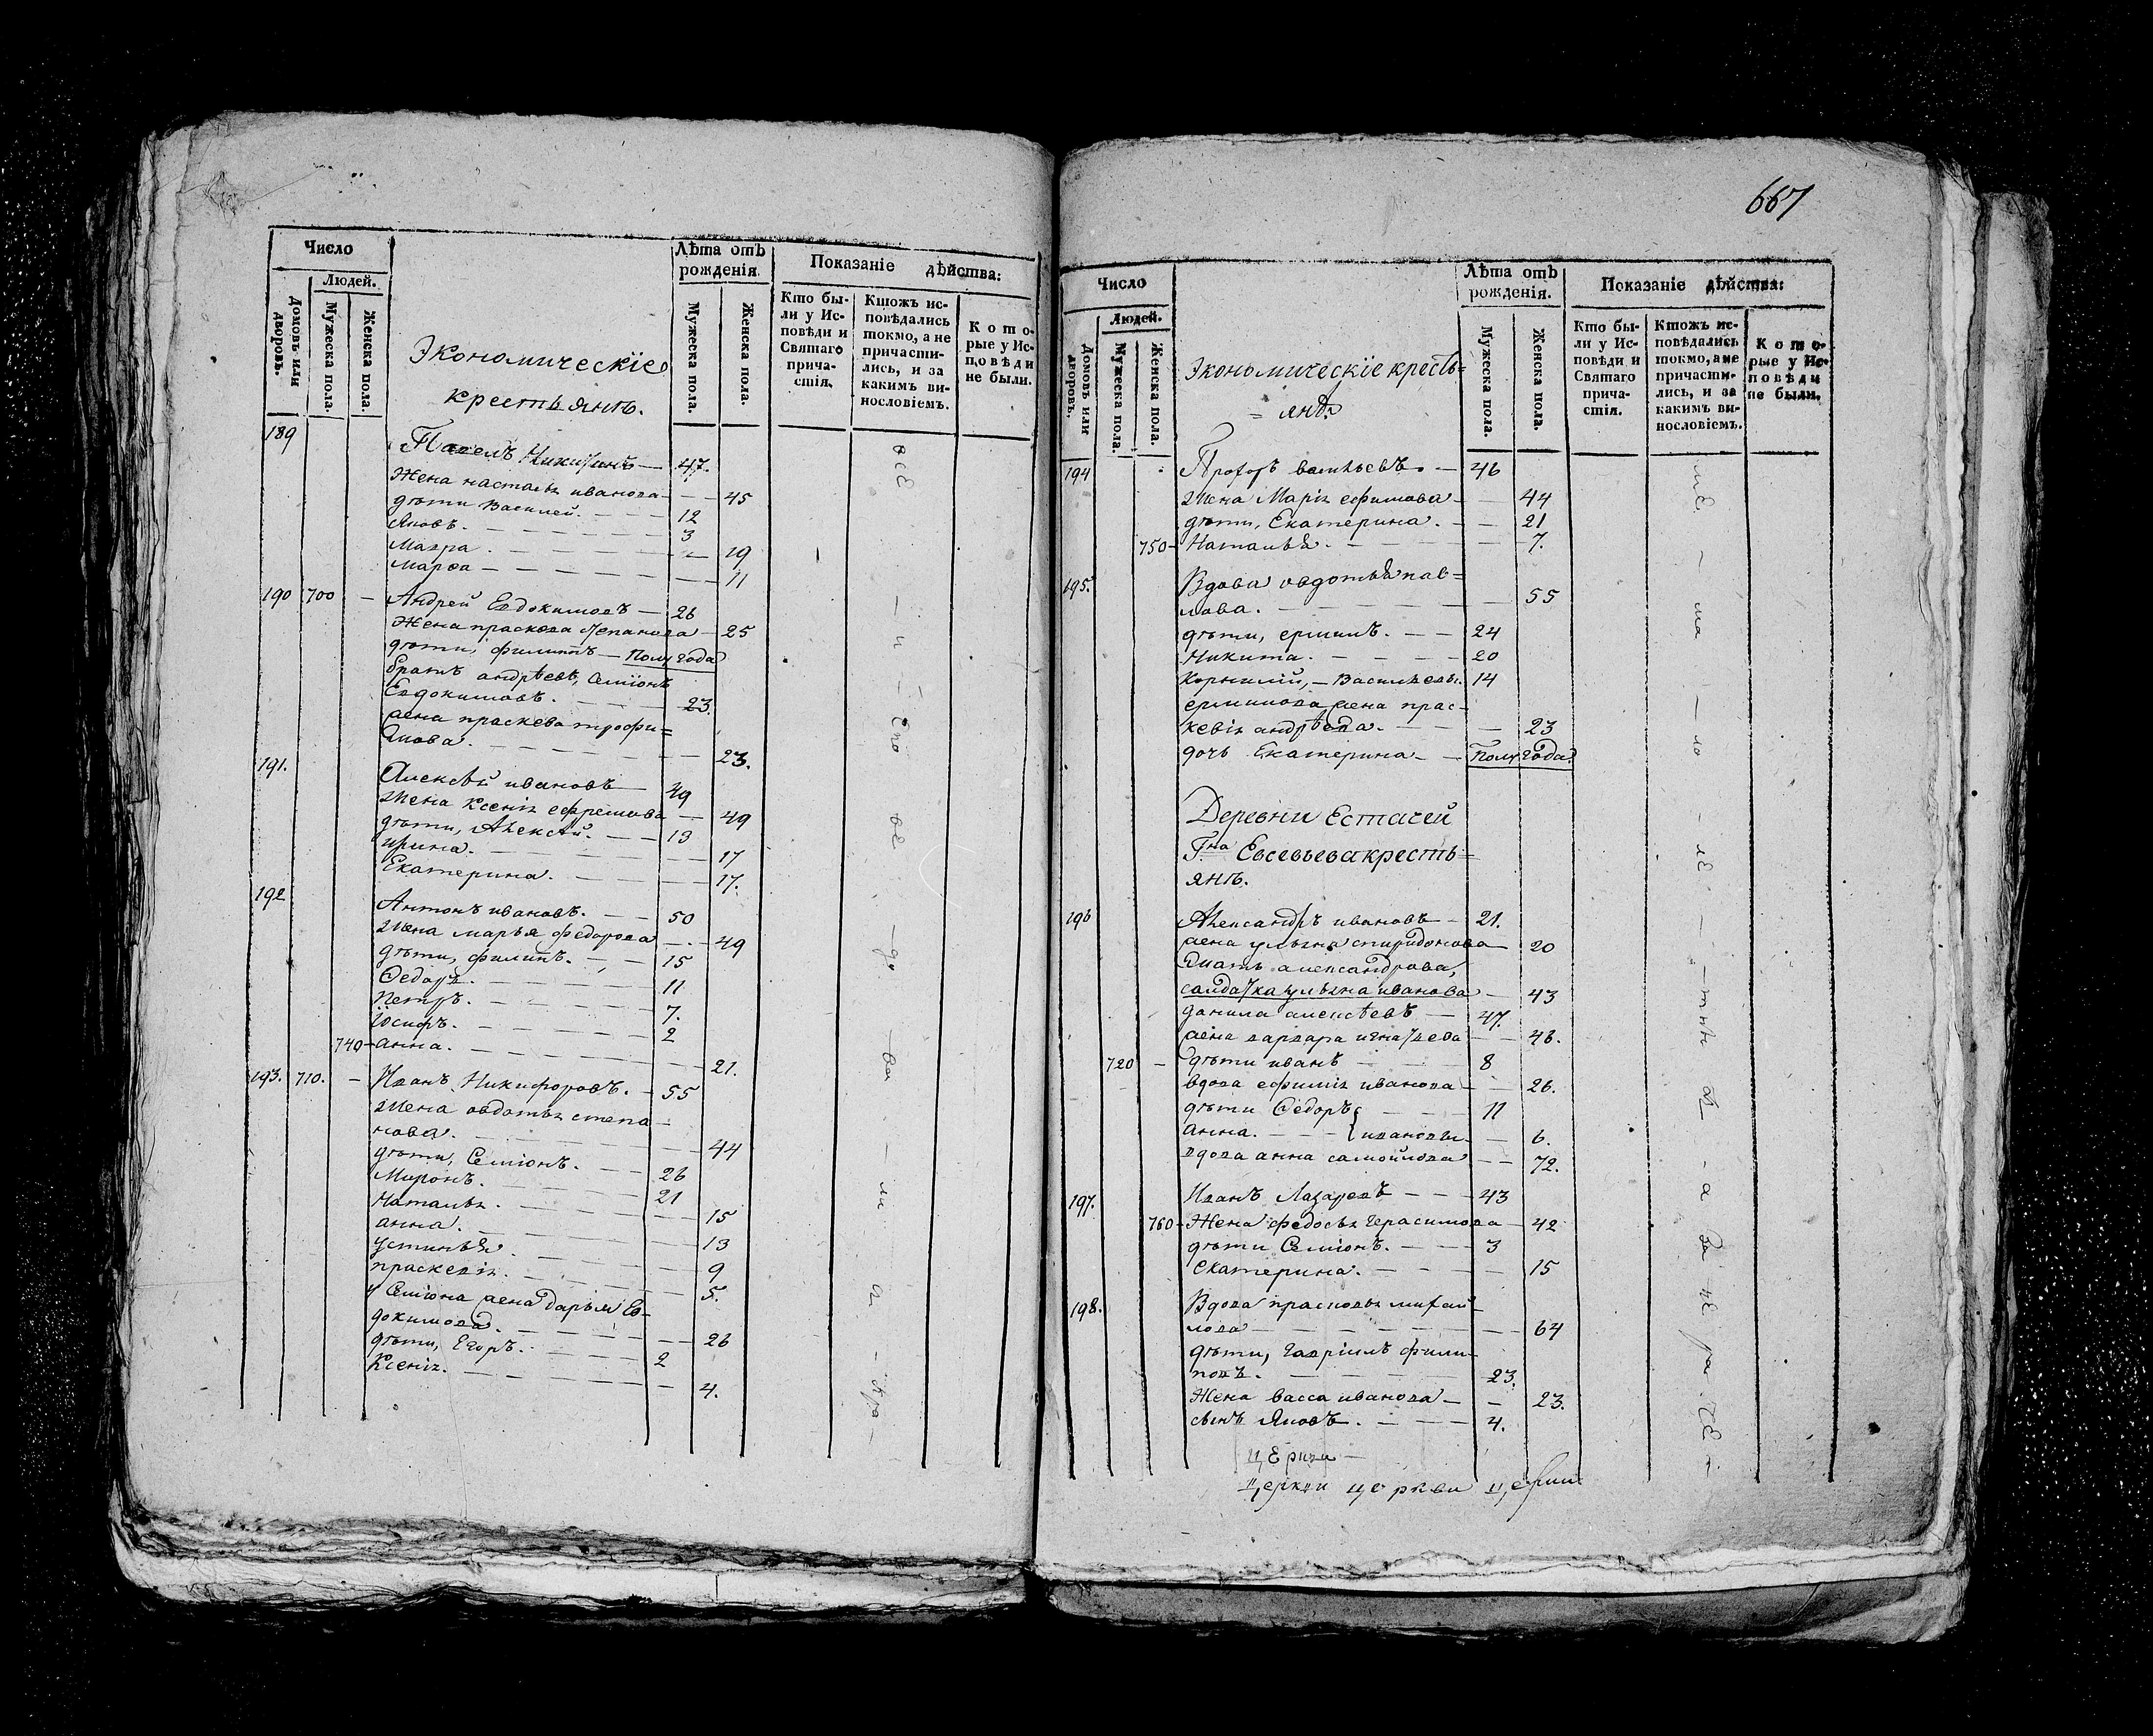 Число
Людей.
Домовъ или дворовъ.
Мужеска пола.
Женска пола.
Экономическіе
крестьянъ.
Лѣта отъ рожденія.
Мужеска пола.
Женска пола.
Показаніе дѣйства:
Кто были у Исповѣди и Святаго причастія.
Ктожъ исповѣдались токмо, а не причастились, и за какимъ винословіемъ.
Которые у Исповѣди не были.
189 Павелъ Никитинъ — 47.
Жена насталья иванова — 45
дѣти Василей. — 12
Яковъ. — 3
Мавра. — 19
Марѳа — 11
190 700 — Андрей Евдокимовъ — 26
Жена праскева степанова — 25
дѣти, филиппъ — Полугода
братъ андрѣевъ, Семіонъ
Евдокимовъ. — 23.
жена праскева трофи=
мова. — 23.
191. Алексѣй ивановъ 49
Жена Ксенія ефремова — 49
дѣти, Алексѣй. — 13
ирина. — 17
Екатерина. — 17.
192 Антонъ ивановъ. — 50
Жена марья федорова — 49
дѣти, филипъ. — 15
Ѳедоръ. — 11
Петръ. — 7.
Іосифъ. — 2
740 — анна. — 21.
193. 710. — Иванъ Никифоровъ. — 55
Жена авдотья степа —
нова. — 44
дѣти, Семіонъ. — 26
Миронъ. — 21
Наталья. — 15
анна. — 13
устинья. — 9
праскевія. — 5.
у Семіона жена дарья Ев-
докимова. — 26
дѣти, Егоръ. — 2
Ксенія. — 4.
всѣ — и — спо вѣ — до — ва — ли — с — при —
667
Число
Людей.
Домовъ или дворовъ.
Мужеска пола.
Женска пола.
Экономическіе кресть=
= янъ
Лѣта отъ рожденія.
Мужеска пола.
Женска пола.
Показаніе дѣйства:
Кто были у Исповѣди и Святаго причастія.
Ктожъ исповѣдались токмо, а не причастились, и за какимъ винословіемъ.
Которые у Исповѣди не были.
194 Прохоръ васильевъ. — 46
Жена Марія ефимова — 44
дѣти, Екатерина. — 21
750 — Наталья. — 7.
195. Вдова овдотья пав=
лова. — 55
дѣти, ермилъ. — 24
Никита. — 20
Корнилій, — Васильевы. 14
ермилова жена прас-
кевія андрѣева. — 23
дочь Екатерина — Полугода
Деревни Естачей
Гна Евсевьева кресть=
янъ.
196 Александръ ивановъ — 21.
жена ульяна спиридонова 20
Мать александрова,
салдатка ульяна иванова — 43
данила алексѣевъ — 47.
жена варвара игнатьева — 46.
720 — дѣти иванъ 8
вдова ефимія иванова — 26.
дѣти Ѳедоръ — 11
анна. — ивановы — 6.
вдова анна самойлова — 72.
197. Иванъ Лазаревъ — 43
760 — Жена федосья герасимова — 42
дѣти Семіонъ. — 3
екатерина. — 15
198. Вдова прасковья михай-
лова — 64
дѣти, гавріилъ фили-
повъ. — 23.
Жена васса иванова — 23.
сынъ Яковъ. — 4.
церкви —
церкви церкви церкви